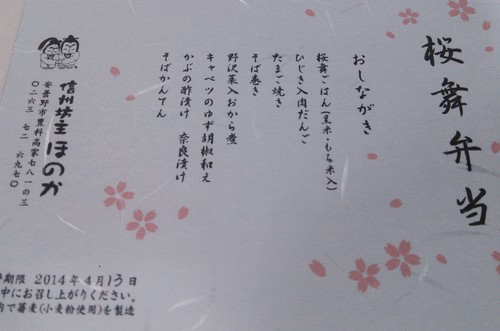 桜舞弁当
おしながき
桜舞ごはん(黒米・もち米入)
ひじき入肉だんご
たまご焼き
そば巻き
野沢菜入おから煮
キャベツのゆず胡椒和え
かぶの酢漬け 奈良漬け
そばかんてん
信州坊主 ほのか
安曇野市豊科高家七八一の三
〇二六三 七二 六九七〇
期限 2014年4月13日
中にお召し上がりください。
内で蕎麦(小麦粉使用)を製造